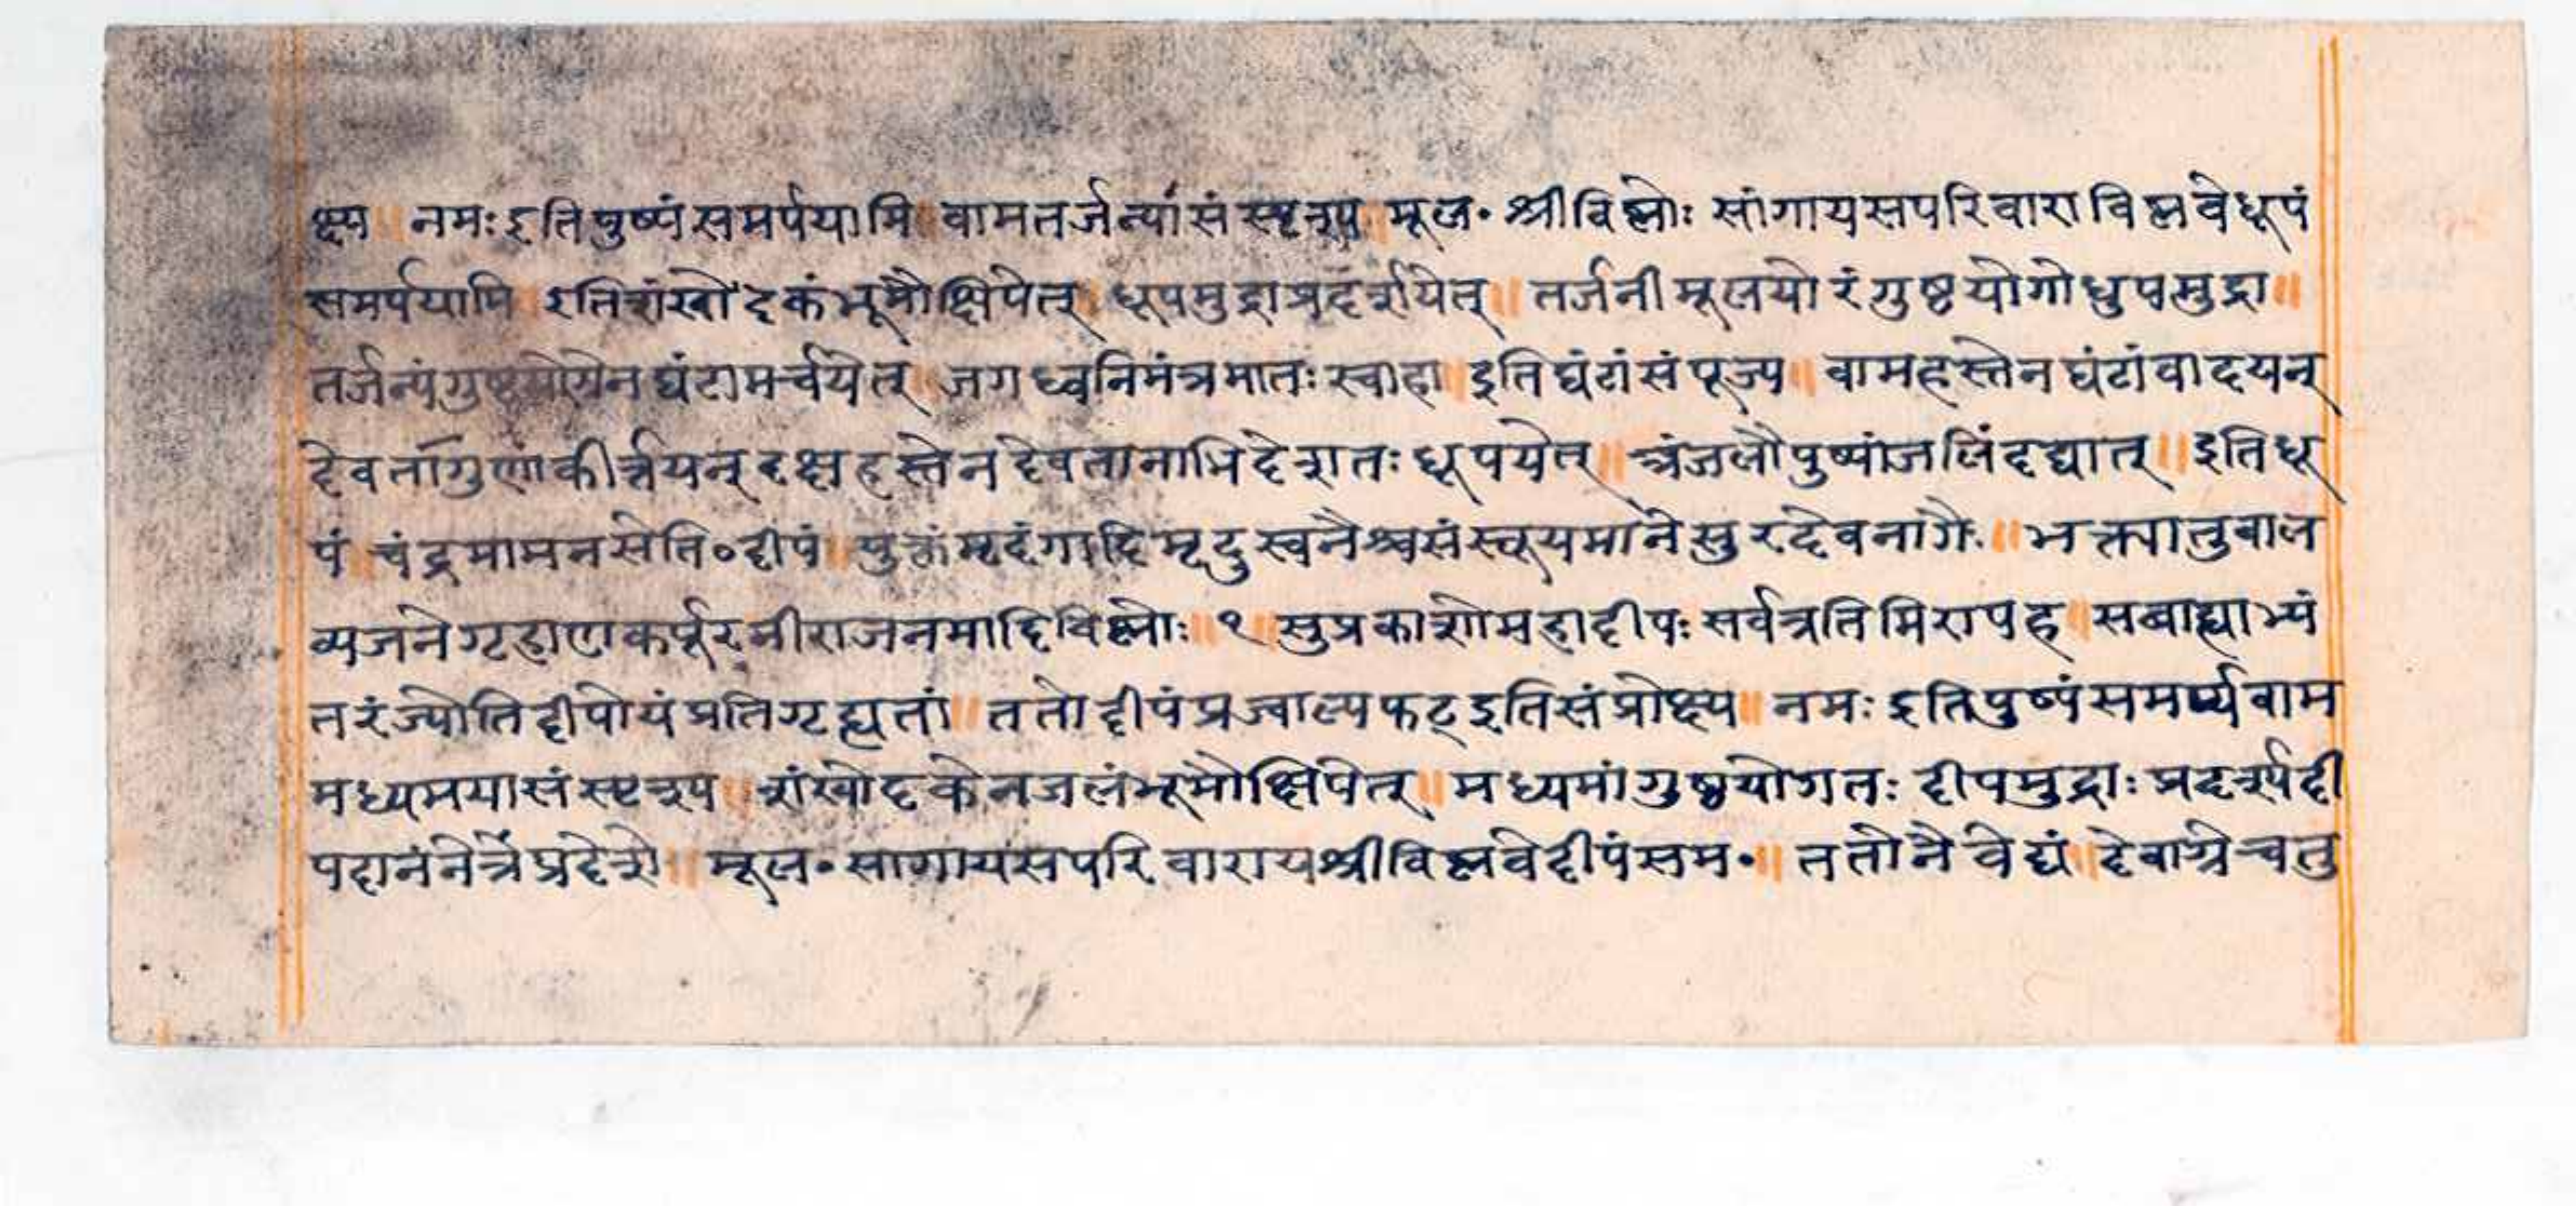 क्ष्य ॥ नमः इति पुष्पं समर्पयामि ॥ वामतर्जन्यां संस्पृश्य ॥ मूल॰ श्रीविष्णोः सांगायसपरिवाराविष्णवेधूपं
समर्पयामि ॥ इतिशंखोदकंभूमौक्षिपेत् ॥ धूपमुद्राप्रदर्शयेत् ॥ तर्जनीमूलयोरंगुष्टयोगोधुपमुद्रा ॥
तर्जन्यंगुष्टयोगेनघंटामर्चयेत् ॥ जगध्वनिमंत्रमातः स्वाहा ॥ इतिघंटांसंपूज्य ॥ वामहस्तेनघंटांवादयन्
देवतांगुणाकीर्त्तयन् दक्षहस्तेनदेवतानाभिदेशतः धूपयेत् ॥ अंजलौपुष्पांजलिंदद्यात् ॥ इतिधू
पं ॥ चंद्रमामनसेति॰ दीपं ॥ युक्तंमृदंगादिमृदुस्वनैश्चसंस्तूयमानेसुरदेवनागैः ॥ भक्त्यातुवाल
व्यजनेगृहाणकर्पूरनीराजनमादिविष्णोः ॥ १ ॥ सुप्रकाशोमहादीपः सर्वत्रतिमिरापह ॥ सबाह्याभ्यं
तरंज्योतिर्दीपोयंप्रतिगृह्यतां ॥ ततोदीपंप्रज्वाल्यफट् इतिसंप्रोक्ष्य ॥ नमः इतिपुष्पंसमर्प्यवाम
मध्यमयासंस्पृश्य ॥ शंखोदकेनजलंभूमौक्षिपेत् ॥ मध्यमांगुष्ठयोगतः दीपमुद्राः प्रदर्श्यदी
पदानंनेत्रेप्रदेशे ॥ मूल॰ सागायसपरिवारायश्रीविष्णवेदीपंसम॰ ॥ ततोनैवेद्यं ॥ देवाग्रेचतु